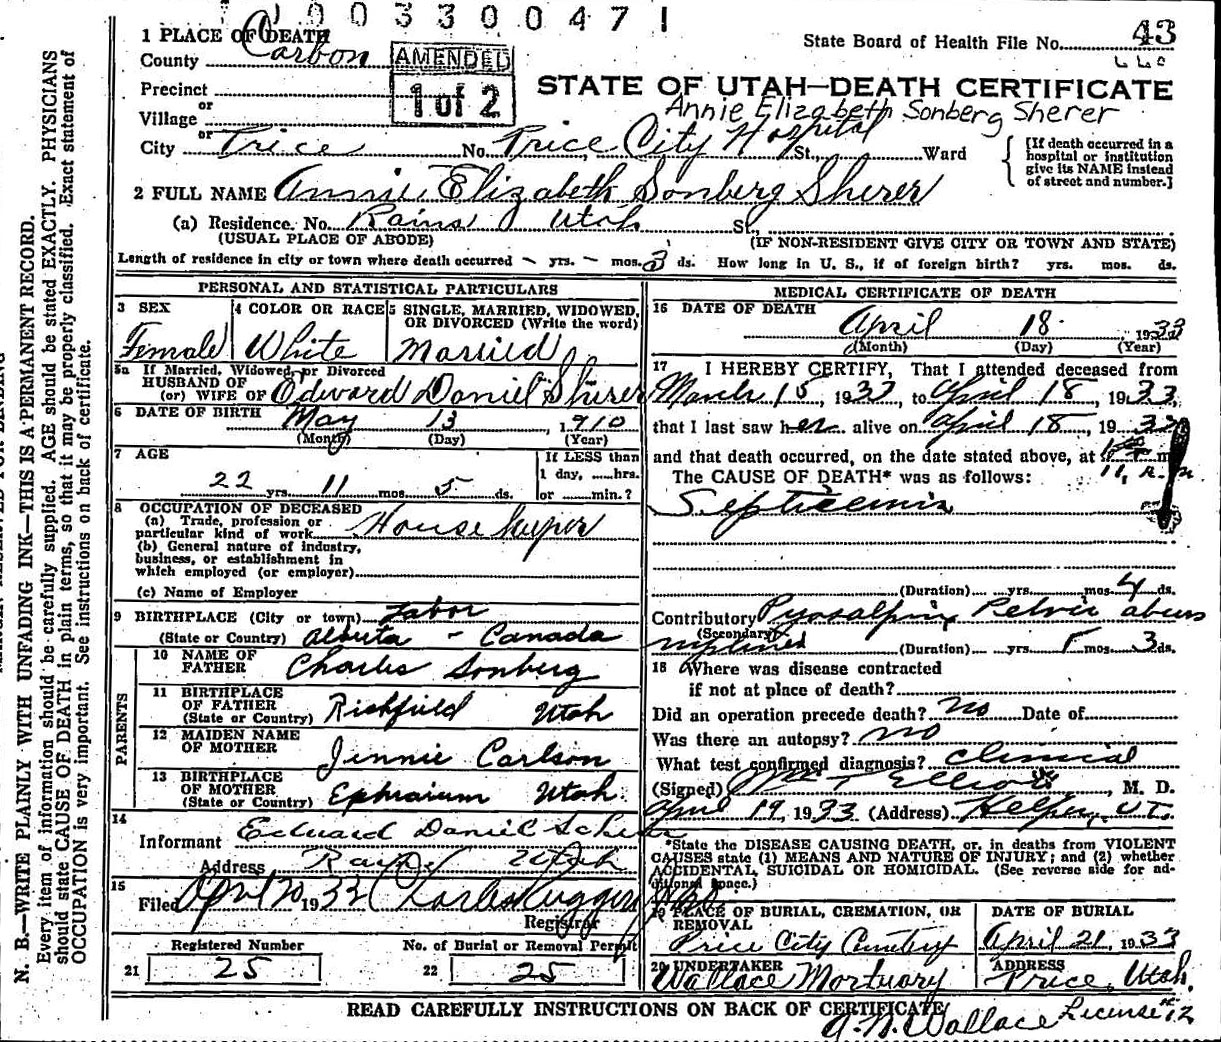 1003300471
1 PLACE OF DEATH
County Carbon
AMENDED
1 of 2
State Board of Health File No. 43
Precinct
or
Village
or
City Price No. Price City Hospital St., Ward
STATE OF UTAH—DEATH CERTIFICATE
Annie Elizabeth Sonberg Sherer
[If death occurred in a hospital or institution give its NAME instead of street and number.]
2 FULL NAME Annie Elizabeth Sonberg Sherer
(a) Residence. No. Rains Utah St.,
(USUAL PLACE OF ABODE) (IF NON-RESIDENT GIVE CITY OR TOWN AND STATE)
Length of residence in city or town where death occurred - yrs. - mos. 3 ds. How long in U. S., if of foreign birth? yrs. mos. ds.
PERSONAL AND STATISTICAL PARTICULARS
3 SEX
Female
4 COLOR OR RACE
White
5 SINGLE, MARRIED, WIDOWED, OR DIVORCED (Write the word)
Married
5a If Married, Widowed, or Divorced
HUSBAND OF
(or) WIFE OF Edward Daniel Sherer
6 DATE OF BIRTH May 13, 1910
(Month) (Day) (Year)
7 AGE
22 yrs. 11 mos. 5 ds.
If LESS than
1 day, ......hrs.
or ......min.?
8 OCCUPATION OF DECEASED
(a) Trade, profession or
particular kind of work House keeper
(b) General nature of industry,
business, or establishment in
which employed (or employer)
(c) Name of Employer
9 BIRTHPLACE (City or town) Tabor
(State or Country) Alberta - Canada
PARENTS
10 NAME OF
FATHER Charles Sonberg
11 BIRTHPLACE
OF FATHER
(State or Country) Richfield Utah
12 MAIDEN NAME
OF MOTHER Jennie Carlson
13 BIRTHPLACE
OF MOTHER
(State or Country) Ephraium Utah.
14
Informant Edward Daniel
Address Utah
15
Filed April 20 1933
Registrar
Registered Number
21 25
No. of Burial or Removal Permit
22 25
MEDICAL CERTIFICATE OF DEATH
16 DATE OF DEATH
April 18, 1933
(Month) (Day) (Year)
17 I HEREBY CERTIFY, That I attended deceased from
March 15, 1933, to April 18, 1933
that I last saw her alive on April 18, 1933
and that death occurred, on the date stated above, at m
The CAUSE OF DEATH* was as follows:
Septicemia
(Duration) yrs. mos. 4 ds.
Contributory Pyosalpinx Pelvic abcess
(Secondary)
(Duration) yrs. 3 ds.
18 Where was disease contracted
if not at place of death?
Did an operation precede death? No Date of
Was there an autopsy? no
What test confirmed diagnosis? Clinical
(Signed) Elliott, M. D.
April 19, 1933 (Address) Helper, Ut.
*State the DISEASE CAUSING DEATH, or, in deaths from VIOLENT
CAUSES state (1) MEANS AND NATURE OF INJURY; and (2) whether
ACCIDENTAL, SUICIDAL OR HOMICIDAL. (See reverse side for ad-
ditional space.)
19 PLACE OF BURIAL, CREMATION, OR
REMOVAL
Price City Cemetery
DATE OF BURIAL
April 21, 1933
20 UNDERTAKER
Wallace Mortuary
ADDRESS
Price, Utah.
READ CAREFULLY INSTRUCTIONS ON BACK OF CERTIFICATE
Wallace License 12
N. B.—WRITE PLAINLY WITH UNFADING INK—THIS IS A PERMANENT RECORD.
Every item of information should be carefully supplied. AGE should be stated EXACTLY. PHYSICIANS
should state CAUSE OF DEATH in plain terms, so that it may be properly classified. Exact statement of
OCCUPATION is very important. See instructions on back of certificate.